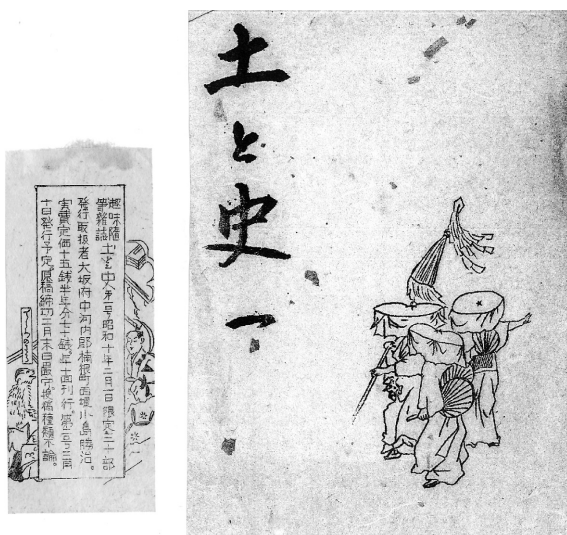 土と史 一
趣味隨
筆雜誌
土と史第一号昭和十年二月一日限定三十部
發行取扱者大坂府中河内郡楠根町西堤小島勝治。
実費定価十五銭半年分七十銭。年十回刊行。第二号三月
十日發行予定。原稿締切二月末日嚴守。投稿種類不論。